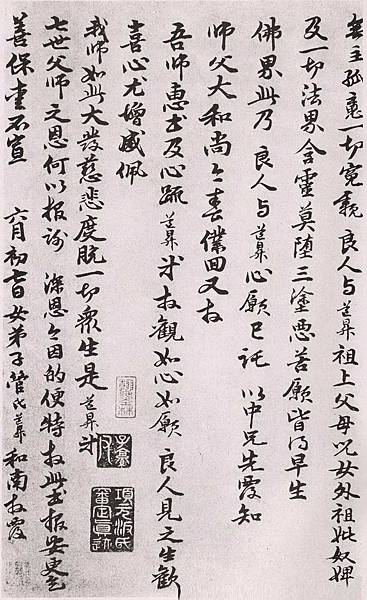 無主孤魂一切冤親良人与道昇祖上父母兒女外祖妣奴婢
及一切法界含靈莫墮三塗惡善願皆得早生
佛界此乃良人与道昇心願已託以中兄先覆知
師父大和尚今春僕回又拜
吾師惠書及心疏道昇拜觀如心如願良人見之生歡
喜心尤增感佩
我師如此大發慈悲度脫一切眾生是道昇
七世父師之恩何以報謝深恩今因的便特拜此書報安更
善保重不宣六月初七日女弟子管氏道昇和南拜覆
項元汴氏審定真跡